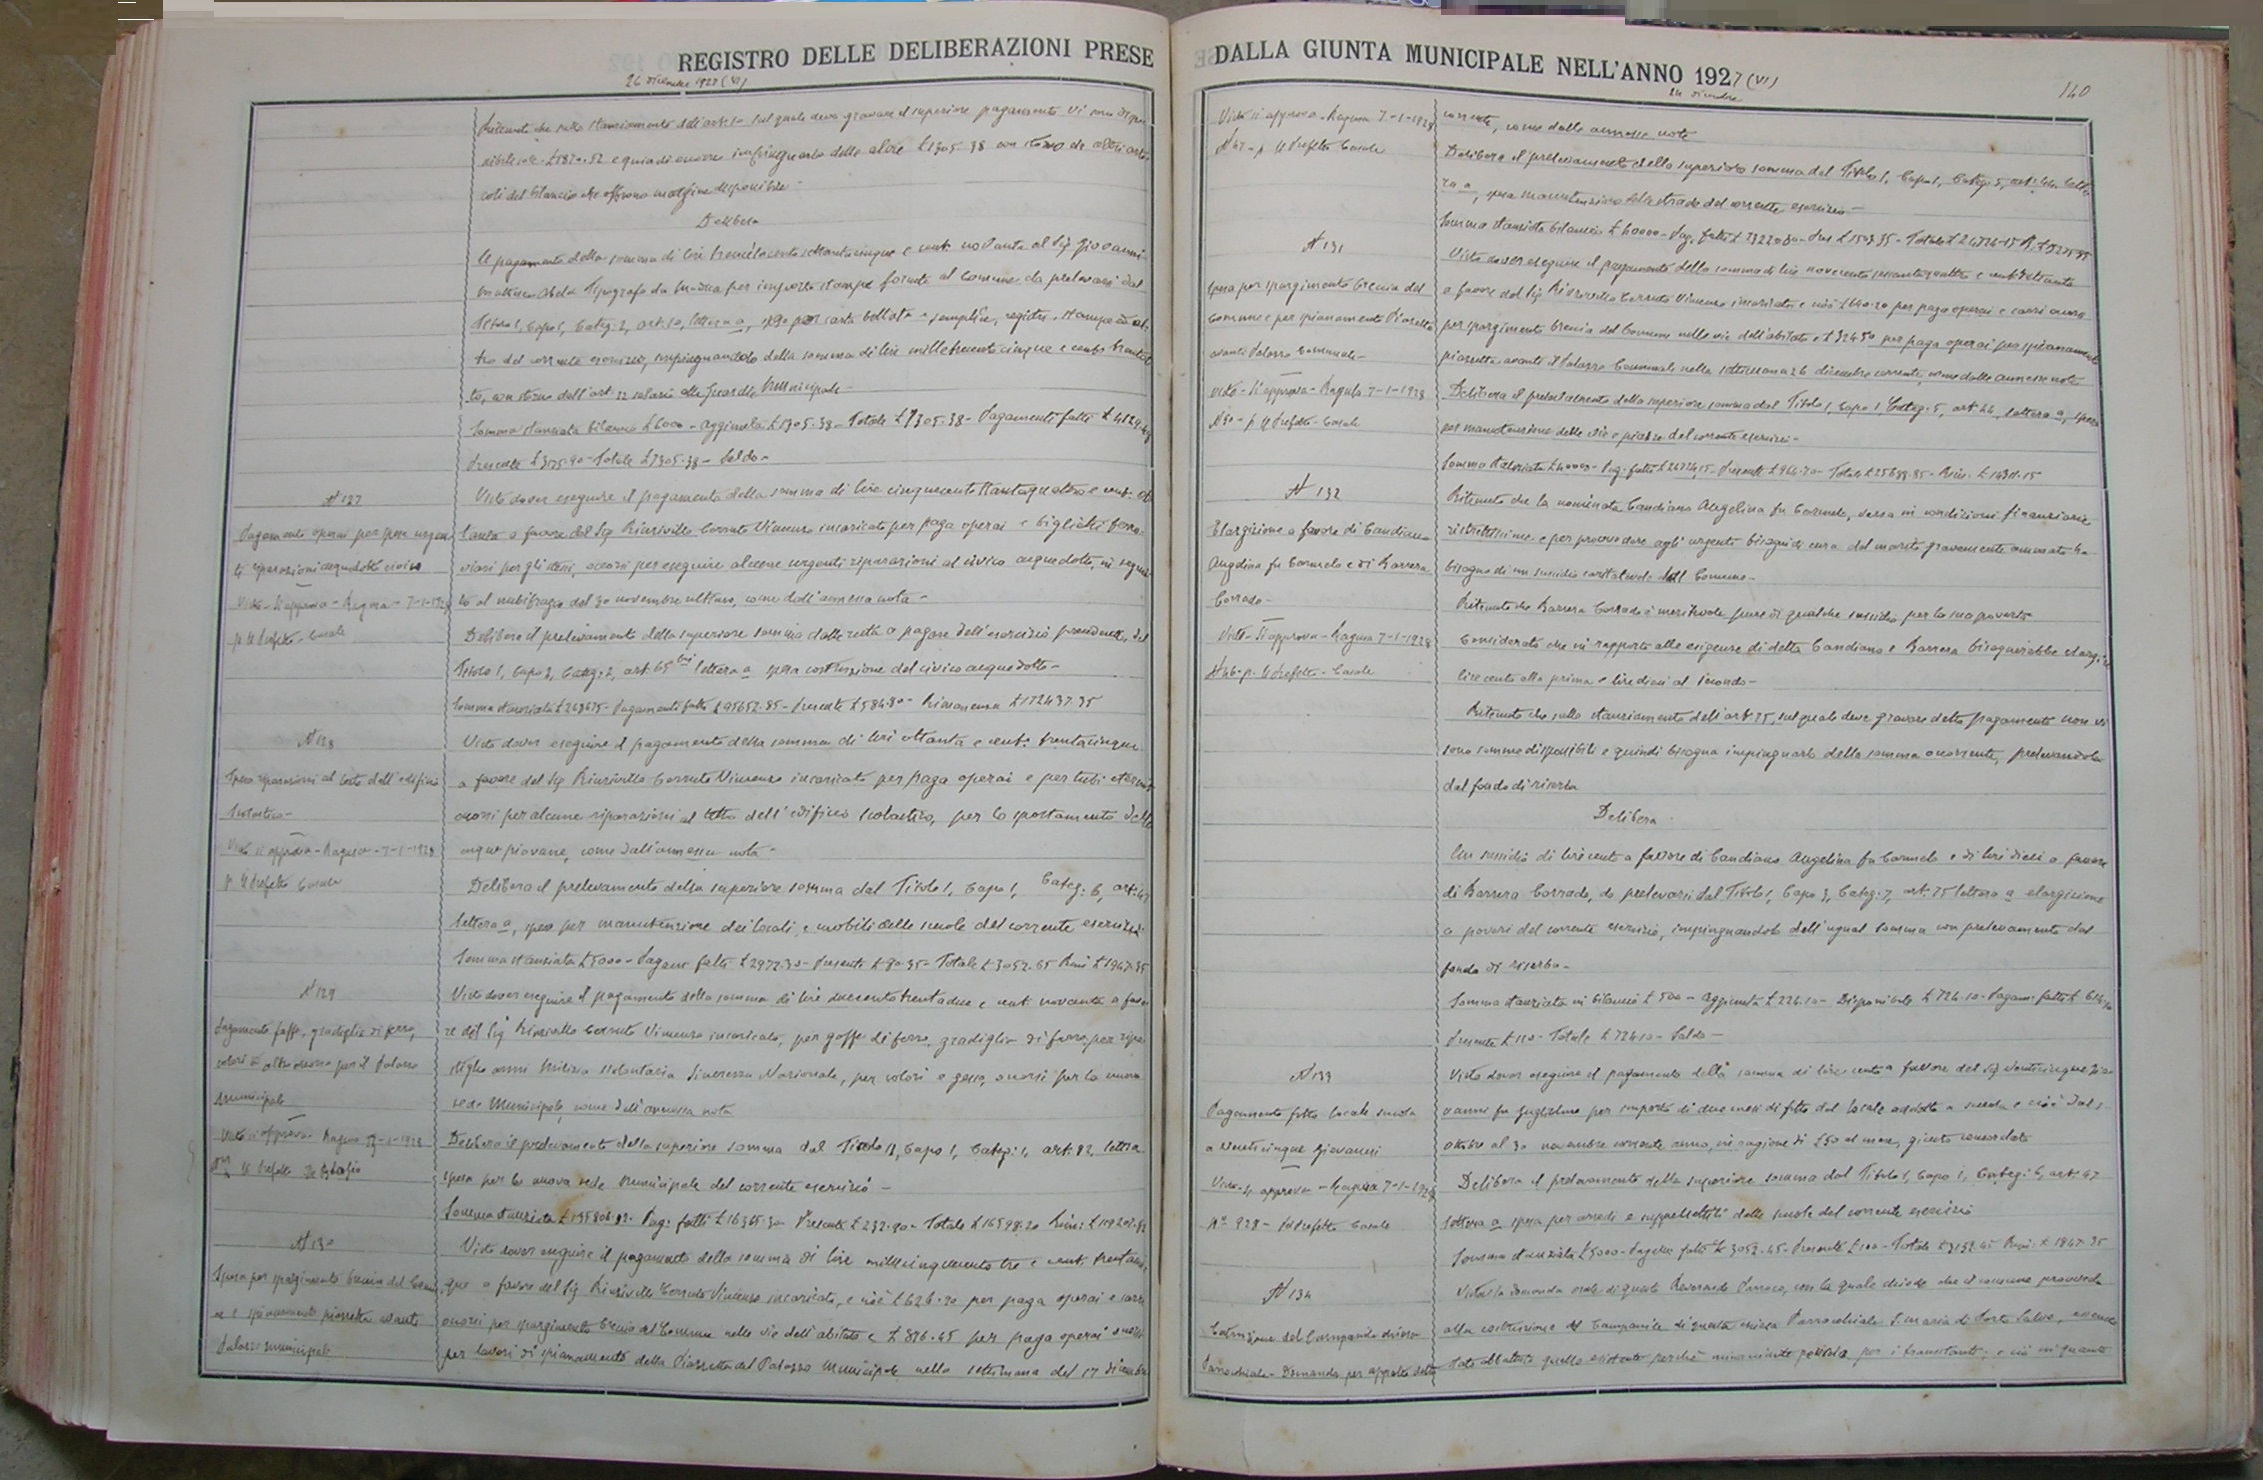 REGISTRO DELLE DELIBERAZIONI PRESE
26 dicembre 1927 (VI)
Ritenuto che sullo stanziamento dell'art. 10 sul quale deve gravare il superiore pagamento vi sono dispo
nibili sole £ 1870.52 e quindi occorre impinguarlo delle altre £ 1305.38 con storno da altri arti
coli del bilancio che offrono margine disponibile -
Delibera
Il pagamento della somma di lire tremilacentosettantacinque e cent. novanta al Sig. Giovanni
Tipografo da Modica per importo stampe fornite al Comune da prelevarsi dal
Titolo I, Capo I, Categ. 2, art. 10, lettera a, spese per carta bollata e semplice, registri, stampe ed al
tro del corrente esercizio, impinguandolo della somma di lire milletrecentocinque e cent. trentot
to, con storno dell'art. 22 salario alle Guardie Municipali -
Somma stanziata bilancio £ 6000 - Aggiunta £ 1305.38 - Totale £ 7305.38 - Pagamenti fatti £ 4129.48
Presente £ 3175.90 - Totale £ 7305.38 - Saldo -
N 127
Pagamento operai per spese urgen
ti riparazioni acquedotto civico
Visto - Si approva - Ragusa - 7-1-1928
p. Il Prefetto - Casale
Visto dover eseguire il pagamento della somma di lire cinquecentottantaquattro e cent. ot
tanta a favore del Sig. Rinzivillo Cerruto Vincenzo incaricato per paga operai e biglietti ferro
viari per gli stessi, occorsi per eseguire alcune urgenti riparazioni al civico acquedotto, in segui
to al nubifragio del 30 novembre ultimo, come dall'annessa nota -
Delibera il prelevamento della superiore somma dalle resta a pagare dell'esercizio precedente, del
Titolo I, Capo 2, Categ. 2, art. 65 bis lettera a spesa costruzione del civico acquedotto -
Somma stanziata £ 268675 - Pagamenti fatti £ 95652.85 - Presente £ 584.80 - Rimanenza £ 172437.35
N 128
Spesa riparazioni al tetto dell'edificio
Scolastico -
Visto si approva - Ragusa - 7-1-1928
p. Il Prefetto Casale
Visto dover eseguire il pagamento della somma di lire ottanta e cent. trentacinque
a favore del Sig. Rinzivillo Cerruto Vincenzo incaricato per paga operai e per tubi eternit
occorsi per alcune riparazioni al tetto dell'edificio scolastico, per lo spostamento delle
acque piovane, come dall'annessa nota -
Delibera il prelevamento della superiore somma dal Titolo I, Capo I, Categ. 6, art. 47
lettera a, spesa per manutenzione dei locali, e mobili delle scuole del corrente esercizio
Somma stanziata £ 5000 - Pagam. fatti £ 2972.30 - Presente £ 80.35 - Totale £ 3052.65 Rim. £ 1947.35
N 129
Pagamento gaffe, gradiglie di ferro,
colori e altro occorso per il Palazzo
Municipale
Visto si approva Ragusa -1-1928
Il Prefetto
Visto dover eseguire il pagamento della somma di lire duecentotrentadue e cent. novanta a favo
re del Sig. Rinzivillo Cerruto Vincenzo incaricato, per gaffe di ferro, gradiglie di ferro per ripo
stiglio armi Milizia Volontaria Sicurezza Nazionale, per colori e gesso, occorsi per la nuova
sede Municipale, come dall'annessa nota
Delibera il prelevamento della superiore somma dal Titolo II, Capo I, Categ. I, art. 82, lettera
spesa per la nuova sede Municipale del corrente esercizio -
Somma stanziata £ 135806.02 - Pag. fatti £ 16365.30 - Presente £ 232.90 - Totale £ 16598.20 Rim. £ 119207.82
N 130
Spesa per spargimento breccia del Comu
ne e spianamento piazzetta avanti
Palazzo Municipale
Visto dover eseguire il pagamento della somma di lire millecinquecentotre e cent. trentacin
que a favore del Sig. Rinzivillo Cerruto Vincenzo incaricato, e cioè £ 626.90 per paga operai e carri
occorsi per spargimento breccia del Comune nelle vie dell'abitato e £ 876.45 per paga operai occorsi
per lavori di spianamento della Piazzetta del Palazzo Municipale nella settimana del 17 dicembre
DALLA GIUNTA MUNICIPALE NELL'ANNO 1927 (VI)
24 dicembre
140
Visto si approva - Ragusa 7-1-1928
N 47 - p. Il Prefetto Casale
corrente, come dalle annesse note
Delibera il prelevamento della superiore somma dal Titolo I, Capo I, Categ. 5, art. 44, lette
ra a, spesa manutenzione delle strade del corrente esercizio -
Somma stanziata bilancio £ 40000 - Pag. fatti £ 23220.80 - Pres. £ 1503.35 - Totale £ 24724.15 R. £ 15275.85
N 131
Spesa per spargimento breccia del
Comune e per spianamento Piazzetta
avanti Palazzo Comunale -
Visto - Si approva - Ragusa 7-1-1928
N 50 - p. Il Prefetto - Casale
Visto dover eseguire il pagamento della somma di lire novecentosessantaquattro e cent. settanta
a favore del Sig. Rinzivillo Cerruto Vincenzo incaricato e cioè £ 640.20 per paga operai e carri occorsi
per spargimento breccia del Comune nelle vie dell'abitato e £ 324.50 per paga operai per spianamento
piazzetta avanti il Palazzo Comunale nella settimana 26 dicembre corrente, come dalle annesse note
Delibera il prelevamento della superiore somma dal Titolo I, Capo I Categ. 5, art. 44, lettera a, spesa
per manutenzione delle vie e piazze del corrente esercizio -
Somma stanziata £ 40000 - Pag. fatti £ 24724.15 - Presente £ 964.70 - Totale £ 25688.85 - Rim. £ 14311.15
N 132
Elargizione a favore di Candiano
Angelina fu Carmelo e di Barrera
Corrado -
Visto - Si approva - Ragusa 7-1-1928
N 46 - p. Il Prefetto - Casale
Ritenuto che la nominata Candiano Angelina fu Carmelo, versa in condizioni finanziarie
ristrettissime e per provvedere agli urgenti bisogni di cura del marito gravemente ammalato ha
bisogno di un sussidio caritatevole dal Comune -
Ritenuto che Barrera Corrado è meritevole pure di qualche sussidio per la sua povertà
Considerato che in rapporto alle esigenze di detta Candiano e Barrera bisognerebbe elargire
lire cento alla prima e lire dieci al secondo -
Ritenuto che sullo stanziamento dell'art. 75, sul quale deve gravare detto pagamento non vi
sono somme disponibili e quindi bisogna impinguarlo della somma occorrente, prelevandola
dal fondo di riserva
Delibera
Un sussidio di lire cento a favore di Candiano Angelina fu Carmelo e di lire dieci a favore
di Barrera Corrado, da prelevarsi dal Titolo I, Capo 3, Categ. 7, art. 75 lettera a elargizione
a poveri del corrente esercizio, impinguandolo dell'ugual somma con prelevamento dal
fondo di riserva -
Somma stanziata in bilancio £ 500 - Aggiunta £ 224.10 - Disponibile £ 724.10 - Pagam. fatti £ 614.10
Presente £ 110 - Totale £ 724.10 - Saldo -
N 133
Pagamento fitto locale scuola
a Venticinque Giovanni
Visto - si approva - Ragusa 7-1-1928
N° 928 - Il Prefetto Casale
Visto dover eseguire il pagamento della somma di lire cento a favore del Sig. Venticinque Gio
vanni fu Guglielmo per importo di due mesi di fitto del locale addetto a scuola e cioè dal 1
ottobre al 30 novembre corrente anno, in ragione di £ 50 al mese, giusto concordato
Delibera il prelevamento della superiore somma dal Titolo I, Capo I, Categ. 6, art. 47
lettera a spesa per arredi e suppellettili delle scuole del corrente esercizio
Somma stanziata £ 5000 - Pagam. fatti £ 3052.65 - Presente £ 100 - Totale £ 3152.65 Rim. £ 1847.35
N 134
Costruzione del Campanile chiesa
Parrocchiale - Domanda per appalto della
Vista la domanda orale di questo Reverendo Parroco, con la quale chiede che il comune provveda
alla costruzione del Campanile di questa chiesa Parrocchiale S. Maria di Porto Salvo, essendo
stato abbattuto quello esistente perchè minacciante pericolo per i transitanti; e ciò in quanto